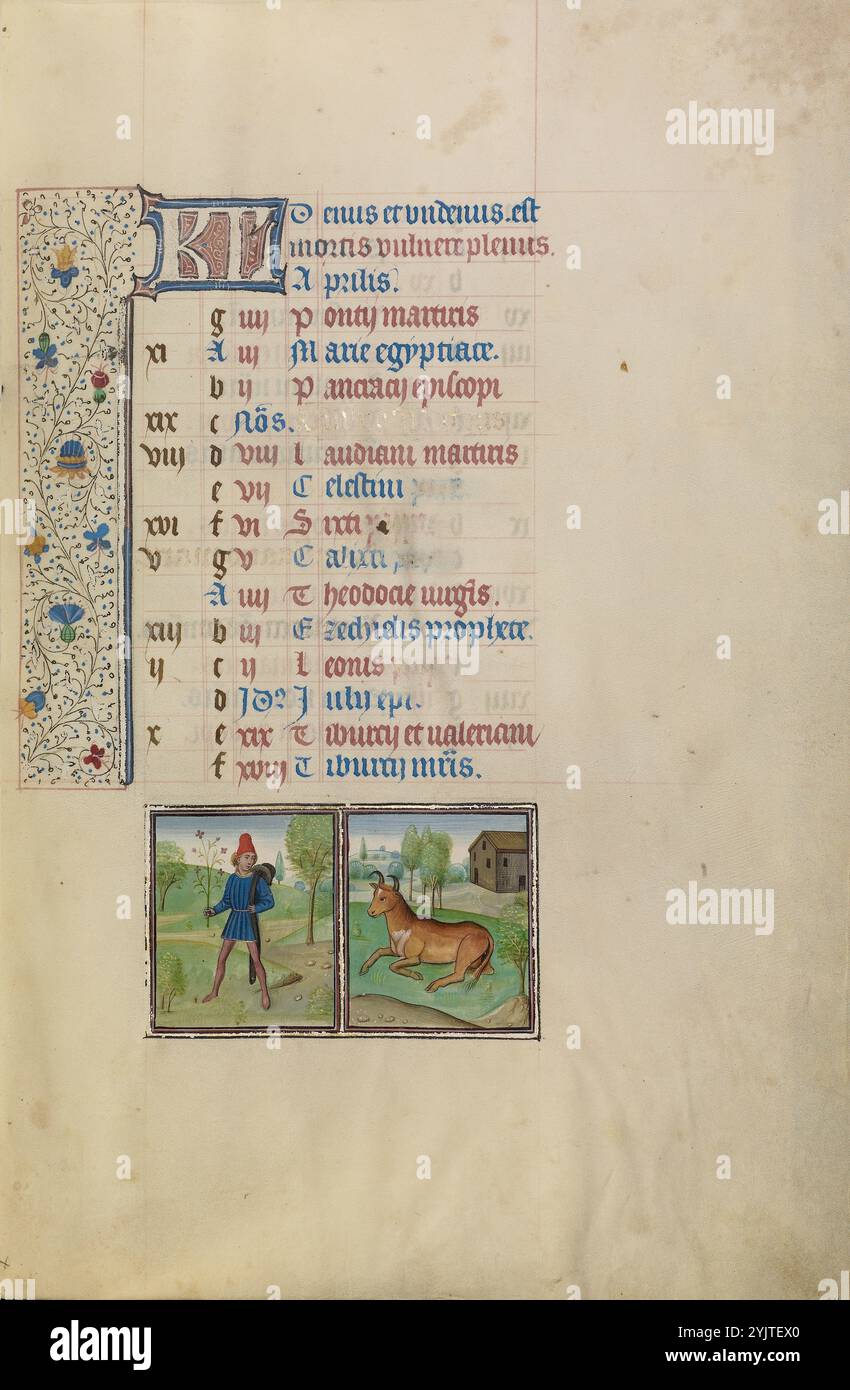 KL D enus et undenus. est
mortis vulnere plenus.
A prilis.
g iiij P ontij martiris
xi A iij M arie egyptiace.
b ij P ancracij episcopi
xix c Nōs.
viij d viij L audiani martiris
e vij C elestini
xvi f vi S ixti
v g v C alixti
A iiij T heodocie uirgīs.
xiij b iij E zechielis prophete.
ij c ij L eonis
d J J ulij epī.
x e xix T iburcij et ualeriani
f xviij T iburcij mr̄is.
a alamy
Image ID: 2YJTEX0
www.alamy.com